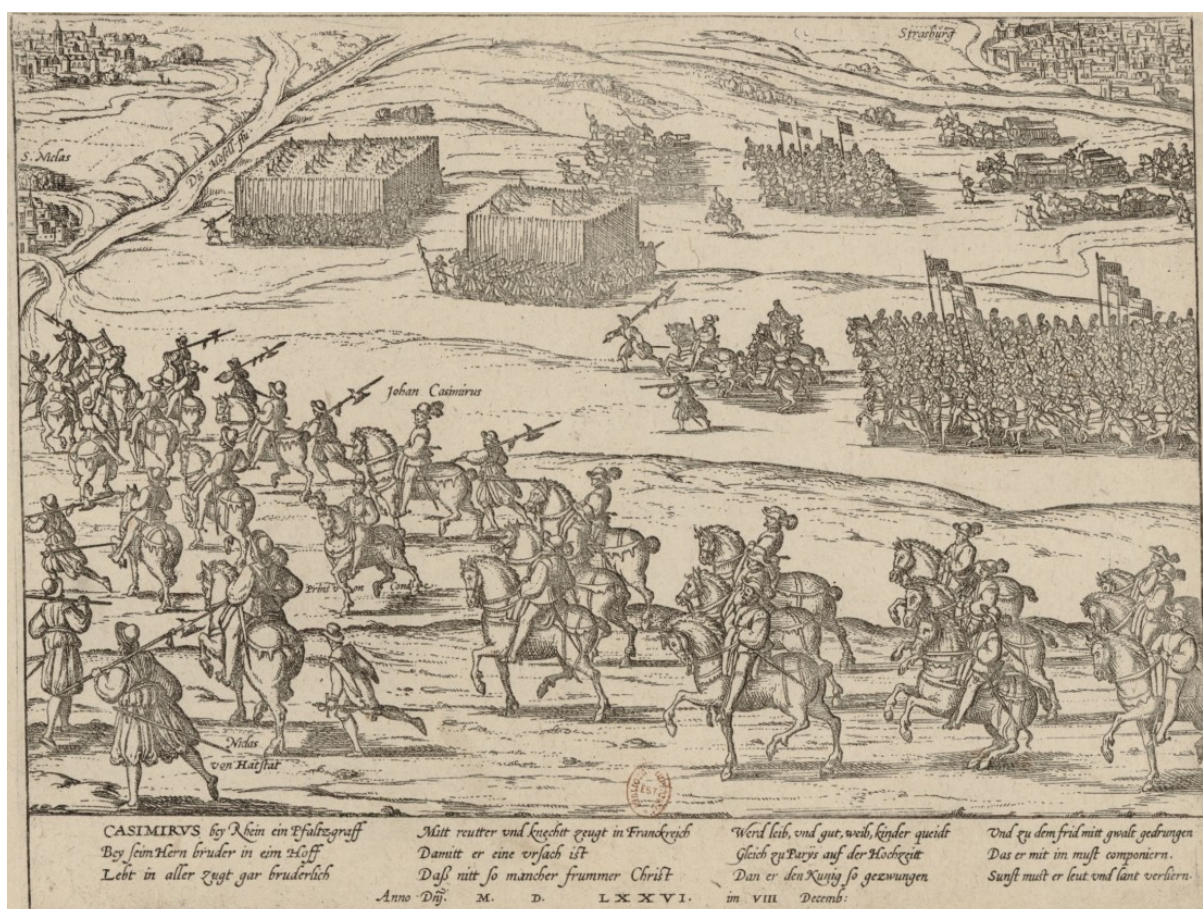 Strasburg
S. Niclas
Die Mosell flu
Johan Casimirus
Prins von Conde
Niclas
von Hatstat
CASIMIRVS bey Rhein ein Pfaltzgraff
Bey seim Hern bruder in eim Hoff
Lebt in aller zugt gar bruderlich
Mitt reutter vnd knecht zeugt in Franckreich
Damitt er eine vrsach ist
Daß nitt so mancher frummer Christ
Werd leib, vnd gut, weib, kinder queidt
Gleich zu Parÿs auf der Hochzeitt
Dan er den Kunig so gezwungen
Vnd zu dem frid mitt gwalt gedrungen
Das er mit im must componiern.
Sunst must er leut vnd lant verliern.
Anno Dnj. M. D. LXXVI. im VIII Decemb: